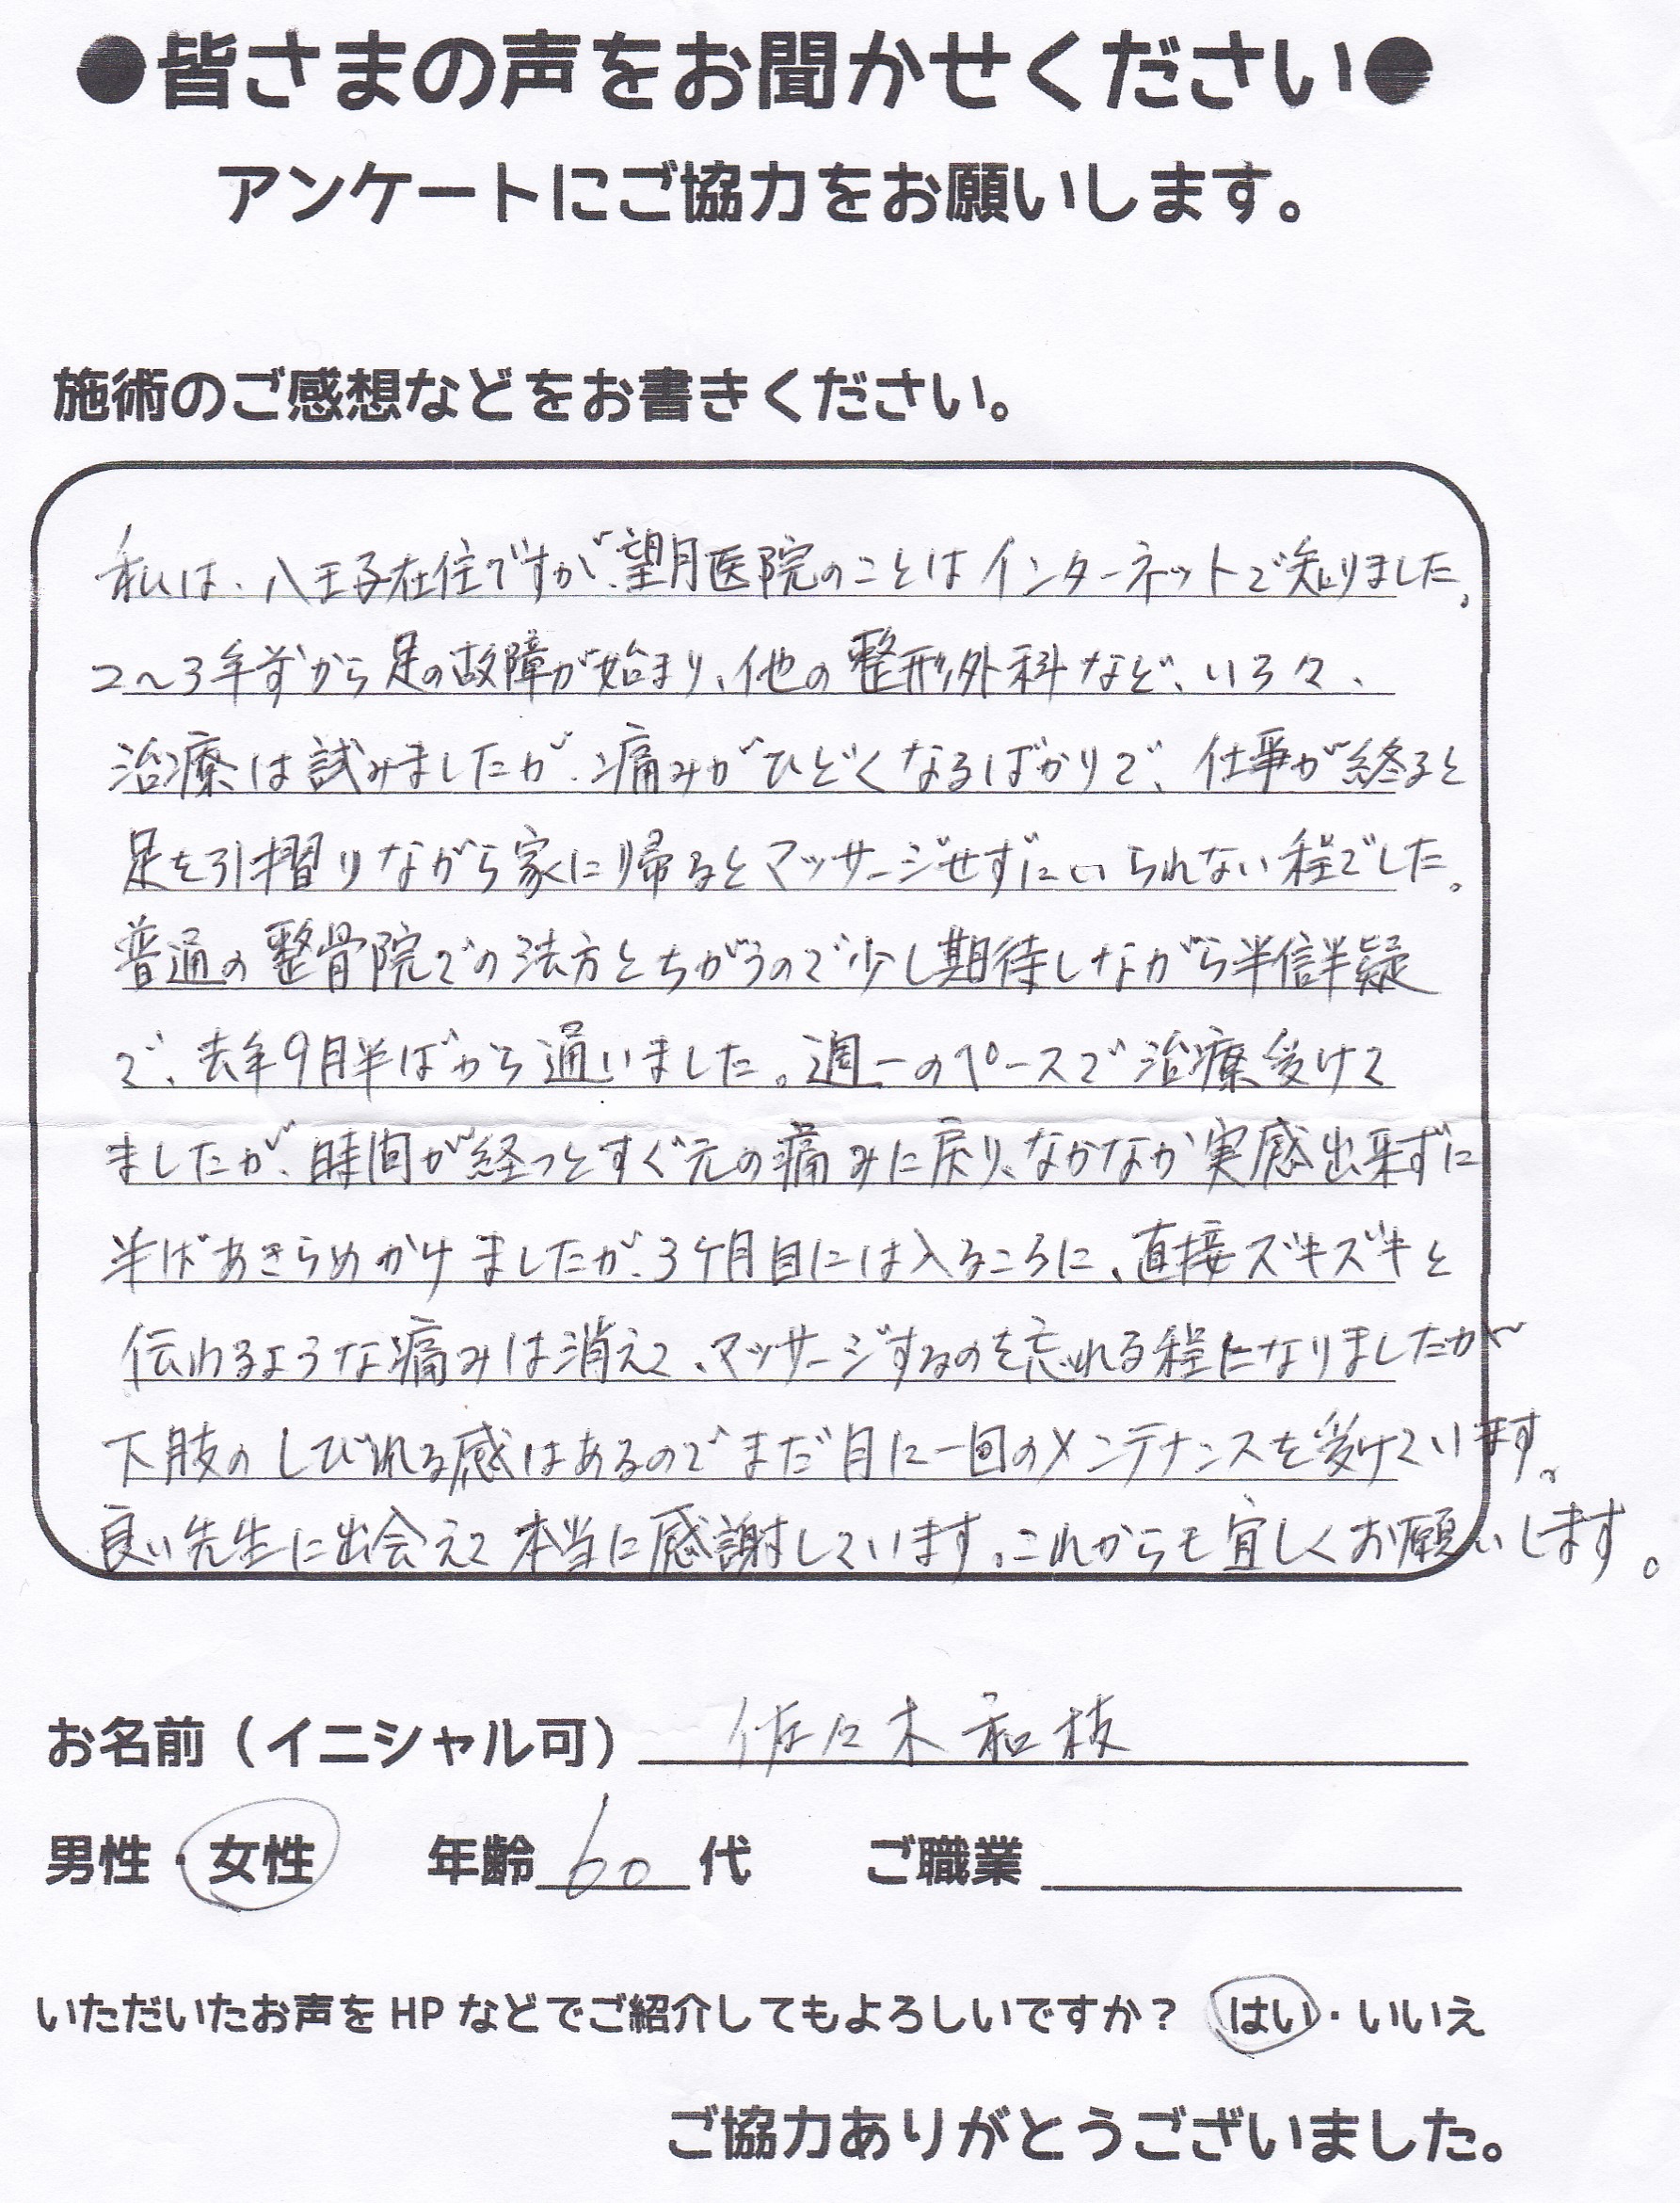 ●皆さまの声をお聞かせください●
アンケートにご協力をお願いします。
施術のご感想などをお書きください。
私は、八王子在住ですが、望月医院のことはインターネットで知りました。
2〜3年前から足の故障が始まり、他の整形外科など、いろ々、
治療は試みましたが、痛みがひどくなるばかりで、仕事が終ると
足を引摺りながら家に帰るとマッサージせずにいられない程でした。
普通の整骨院での法方とちがうので少し期待しながら半信半疑
で、去年9月半ばから通いました。週一のペースで治療受けて
ましたが、時間が経つとすぐ元の痛みに戻り、なかなか実感出来ずに
半ばあきらめかけましたが、3ヶ月目には入るころに、直接ズキズキと
伝わるような痛みは消えて、マッサージするのを忘れる程になりましたが
下肢のしびれる感はあるのでまだ月に一回のメンテナンスを受けています。
良い先生に出会えて本当に感謝しています。これからも宜しくお願いします。
お名前（イニシャル可） 佐々木和枝
男性・女性 年齢 60 代 ご職業
いただいたお声をHPなどでご紹介してもよろしいですか？ はい・いいえ
ご協力ありがとうございました。